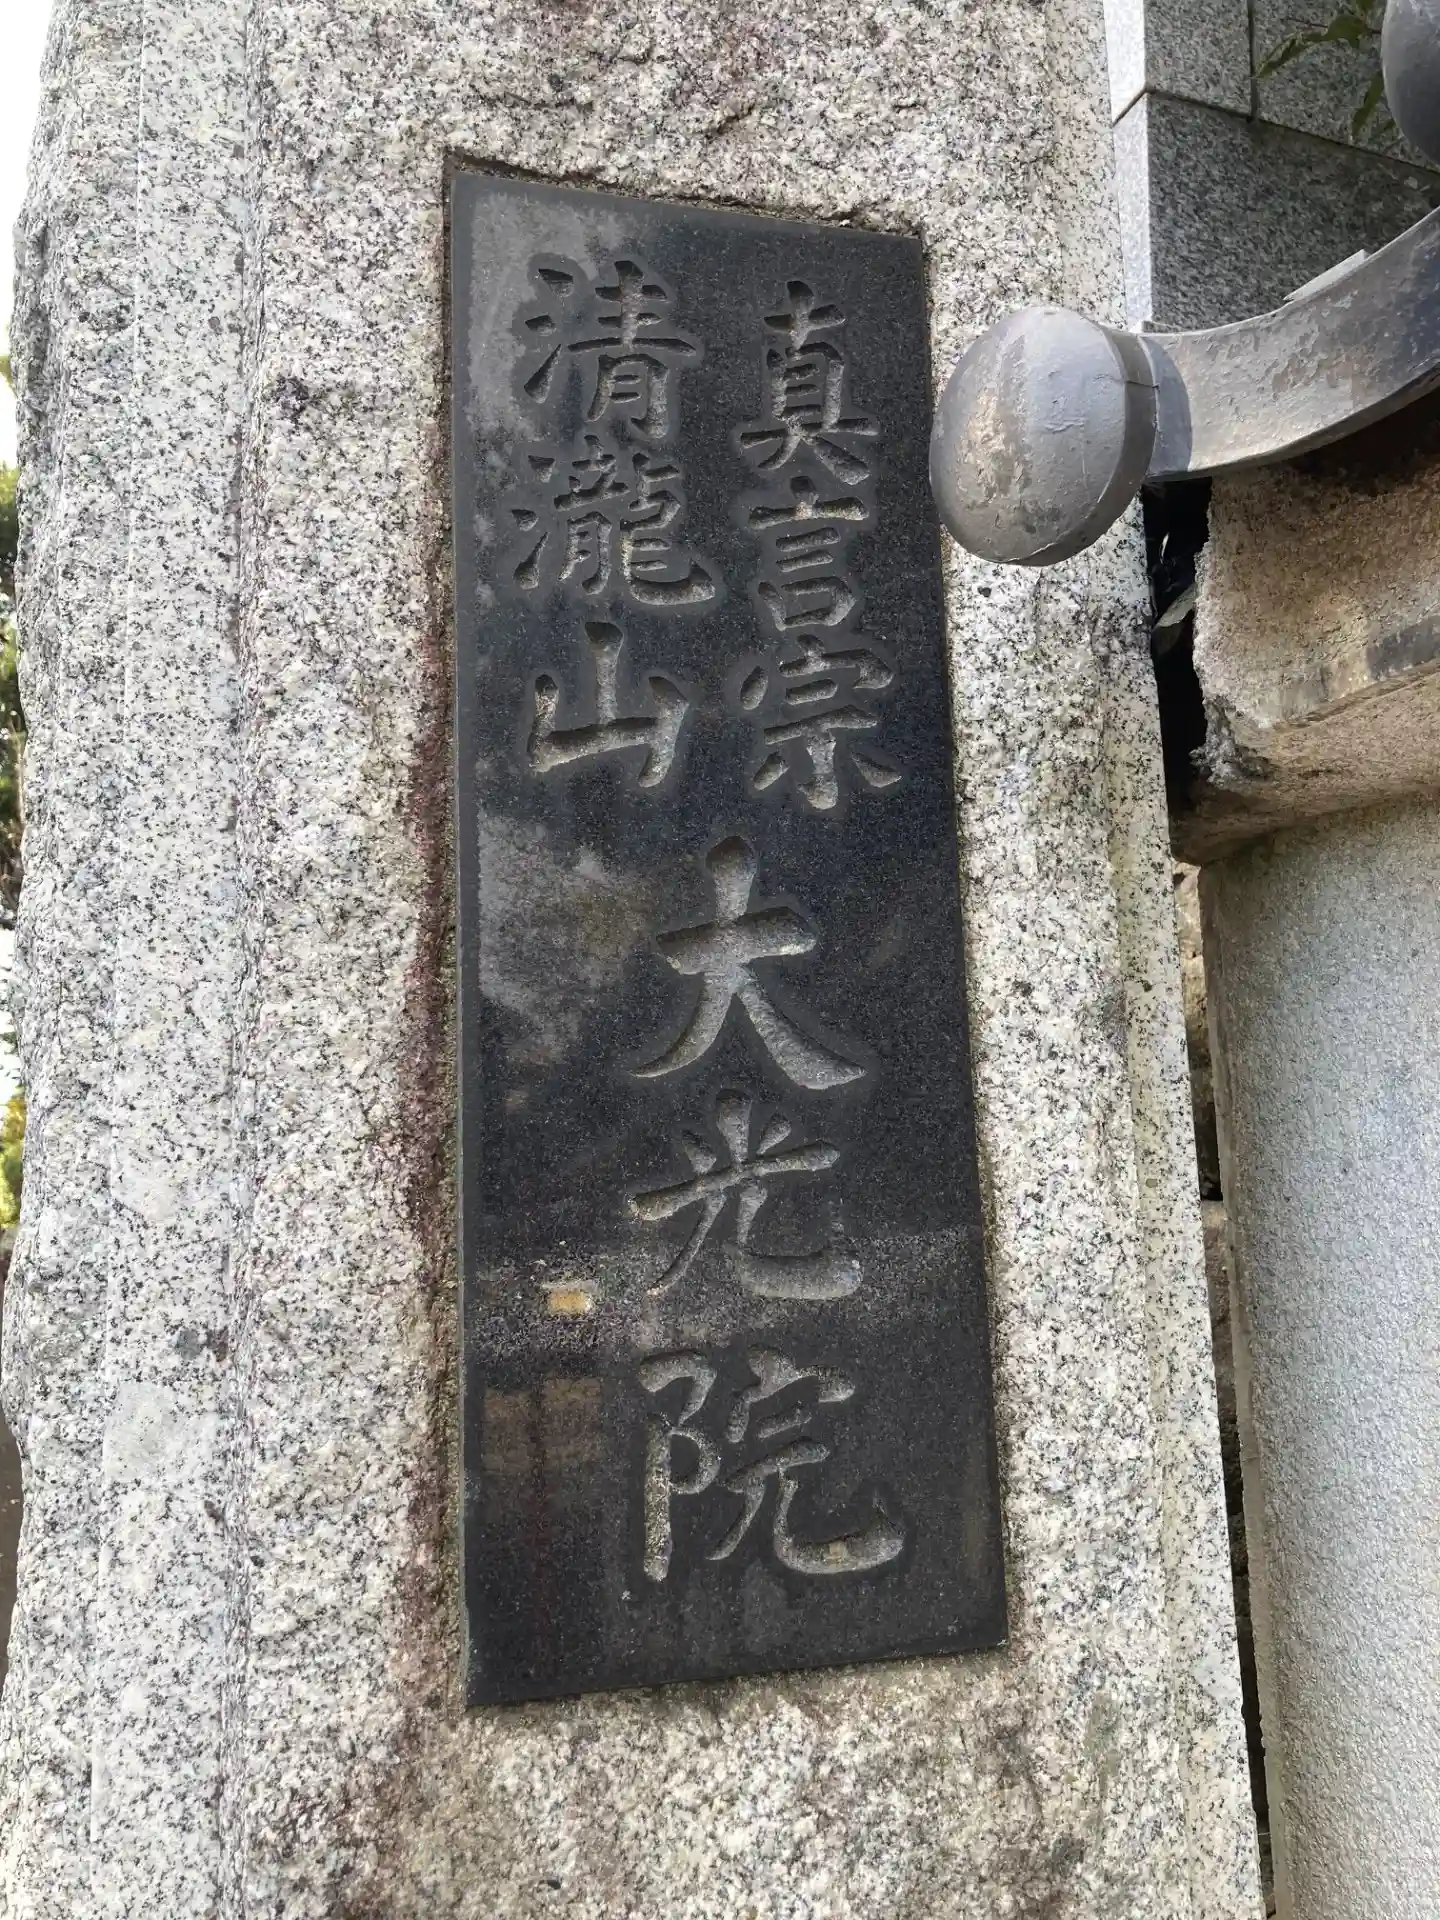 真言宗
清瀧山
大光院